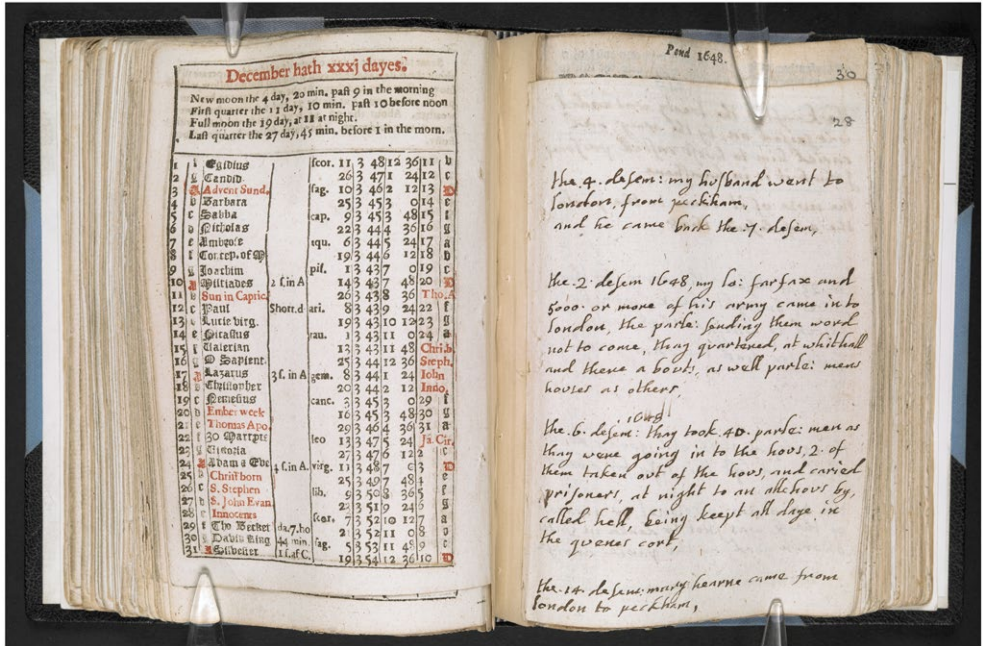 December hath xxxj dayes.
New moon the 4 day, 20 min. past 9 in the morning
First quarter the 11 day, 10 min. past 10 before noon
Full moon the 19 day, at 11 at night.
Last quarter the 27 day, 45 min. before 1 in the morn.
1 Egidius scor. 11 3 48 12 36 11 b
2 Candid. 26 3 47 1 24 12 c
3 A Advent Sund. sag. 10 3 46 2 12 13 D
4 Barbara 25 3 45 3 0 14 e
5 c Sabba cap. 9 3 45 3 48 15 f
6 Nicholas 22 3 44 4 36 16 g
7 e Ambrose aqu. 6 3 44 5 24 17 a
8 f 19 3 44 6 12 18 b
9 g Joachim pis. 1 3 43 7 0 19 c
10 A Miltiades 2 s. in A 14 3 43 7 48 20 D
11 Sun in Capric. 26 3 43 8 36 Tho. A
12 c Paul Short. d ari. 8 3 43 9 24 22 f
13 Lucie virg. 19 3 43 10 12 23 g
14 e Nicasius tau. 1 3 43 11 0 24 a
15 Valerian 13 3 43 11 48 Chri. b
16 O Sapient. 25 3 44 12 36 Steph.
17 A Lazarus 3 s. in A gem. 8 3 44 1 24 Iohn
18 Christopher 20 3 44 2 12 Inno.
19 c Nemesius canc. 3 3 45 3 0 29 f
20 Ember week 16 3 45 3 48 30 g
21 e Thomas Apo. 29 3 46 4 36 31 a
22 f 30 Martyrs leo 13 3 47 5 24 Ja. Cir.
23 g Victoria 27 3 47 6 12 2 c
24 A Adam & Eve 4 s. in A. virg. 11 3 48 7 3 D
25 Christ born 25 3 49 7 48 4 e
26 c S. Stephen lib. 9 3 50 8 36 5 f
27 S. John Evan. 22 3 51 9 24 6 g
28 e Innocents scor. 7 3 52 10 12 7 a
29 f Tho Becket da. 7. ho 21 3 52 11 0 8 b
30 g David King 44 min. sag. 5 3 53 11 48 9 c
31 A Silvester 1 s. af C. 19 3 54 12 36 10 D
Pond 1648.
30
28
the .4. desem: my husband went to
london, from peckham,
and he came back the .7. desem,
the .2. desem 1648, my lo: farfax and
5000. or more of his army came in to
london, the parle: sending them word
not to come, thay quartered, at whithall
and there a bouts, as well parle: mens
houses as others,
1648
the .6. desem: thay took .40. parle: men as
thay were going in to the hous, 2. of
them taken out of the hous, and caried
prisoners, at night to an allehous by,
called hell, being keept all daye in
the quenes cort,
the .14. desem: mary hearne came from
london to peckham,